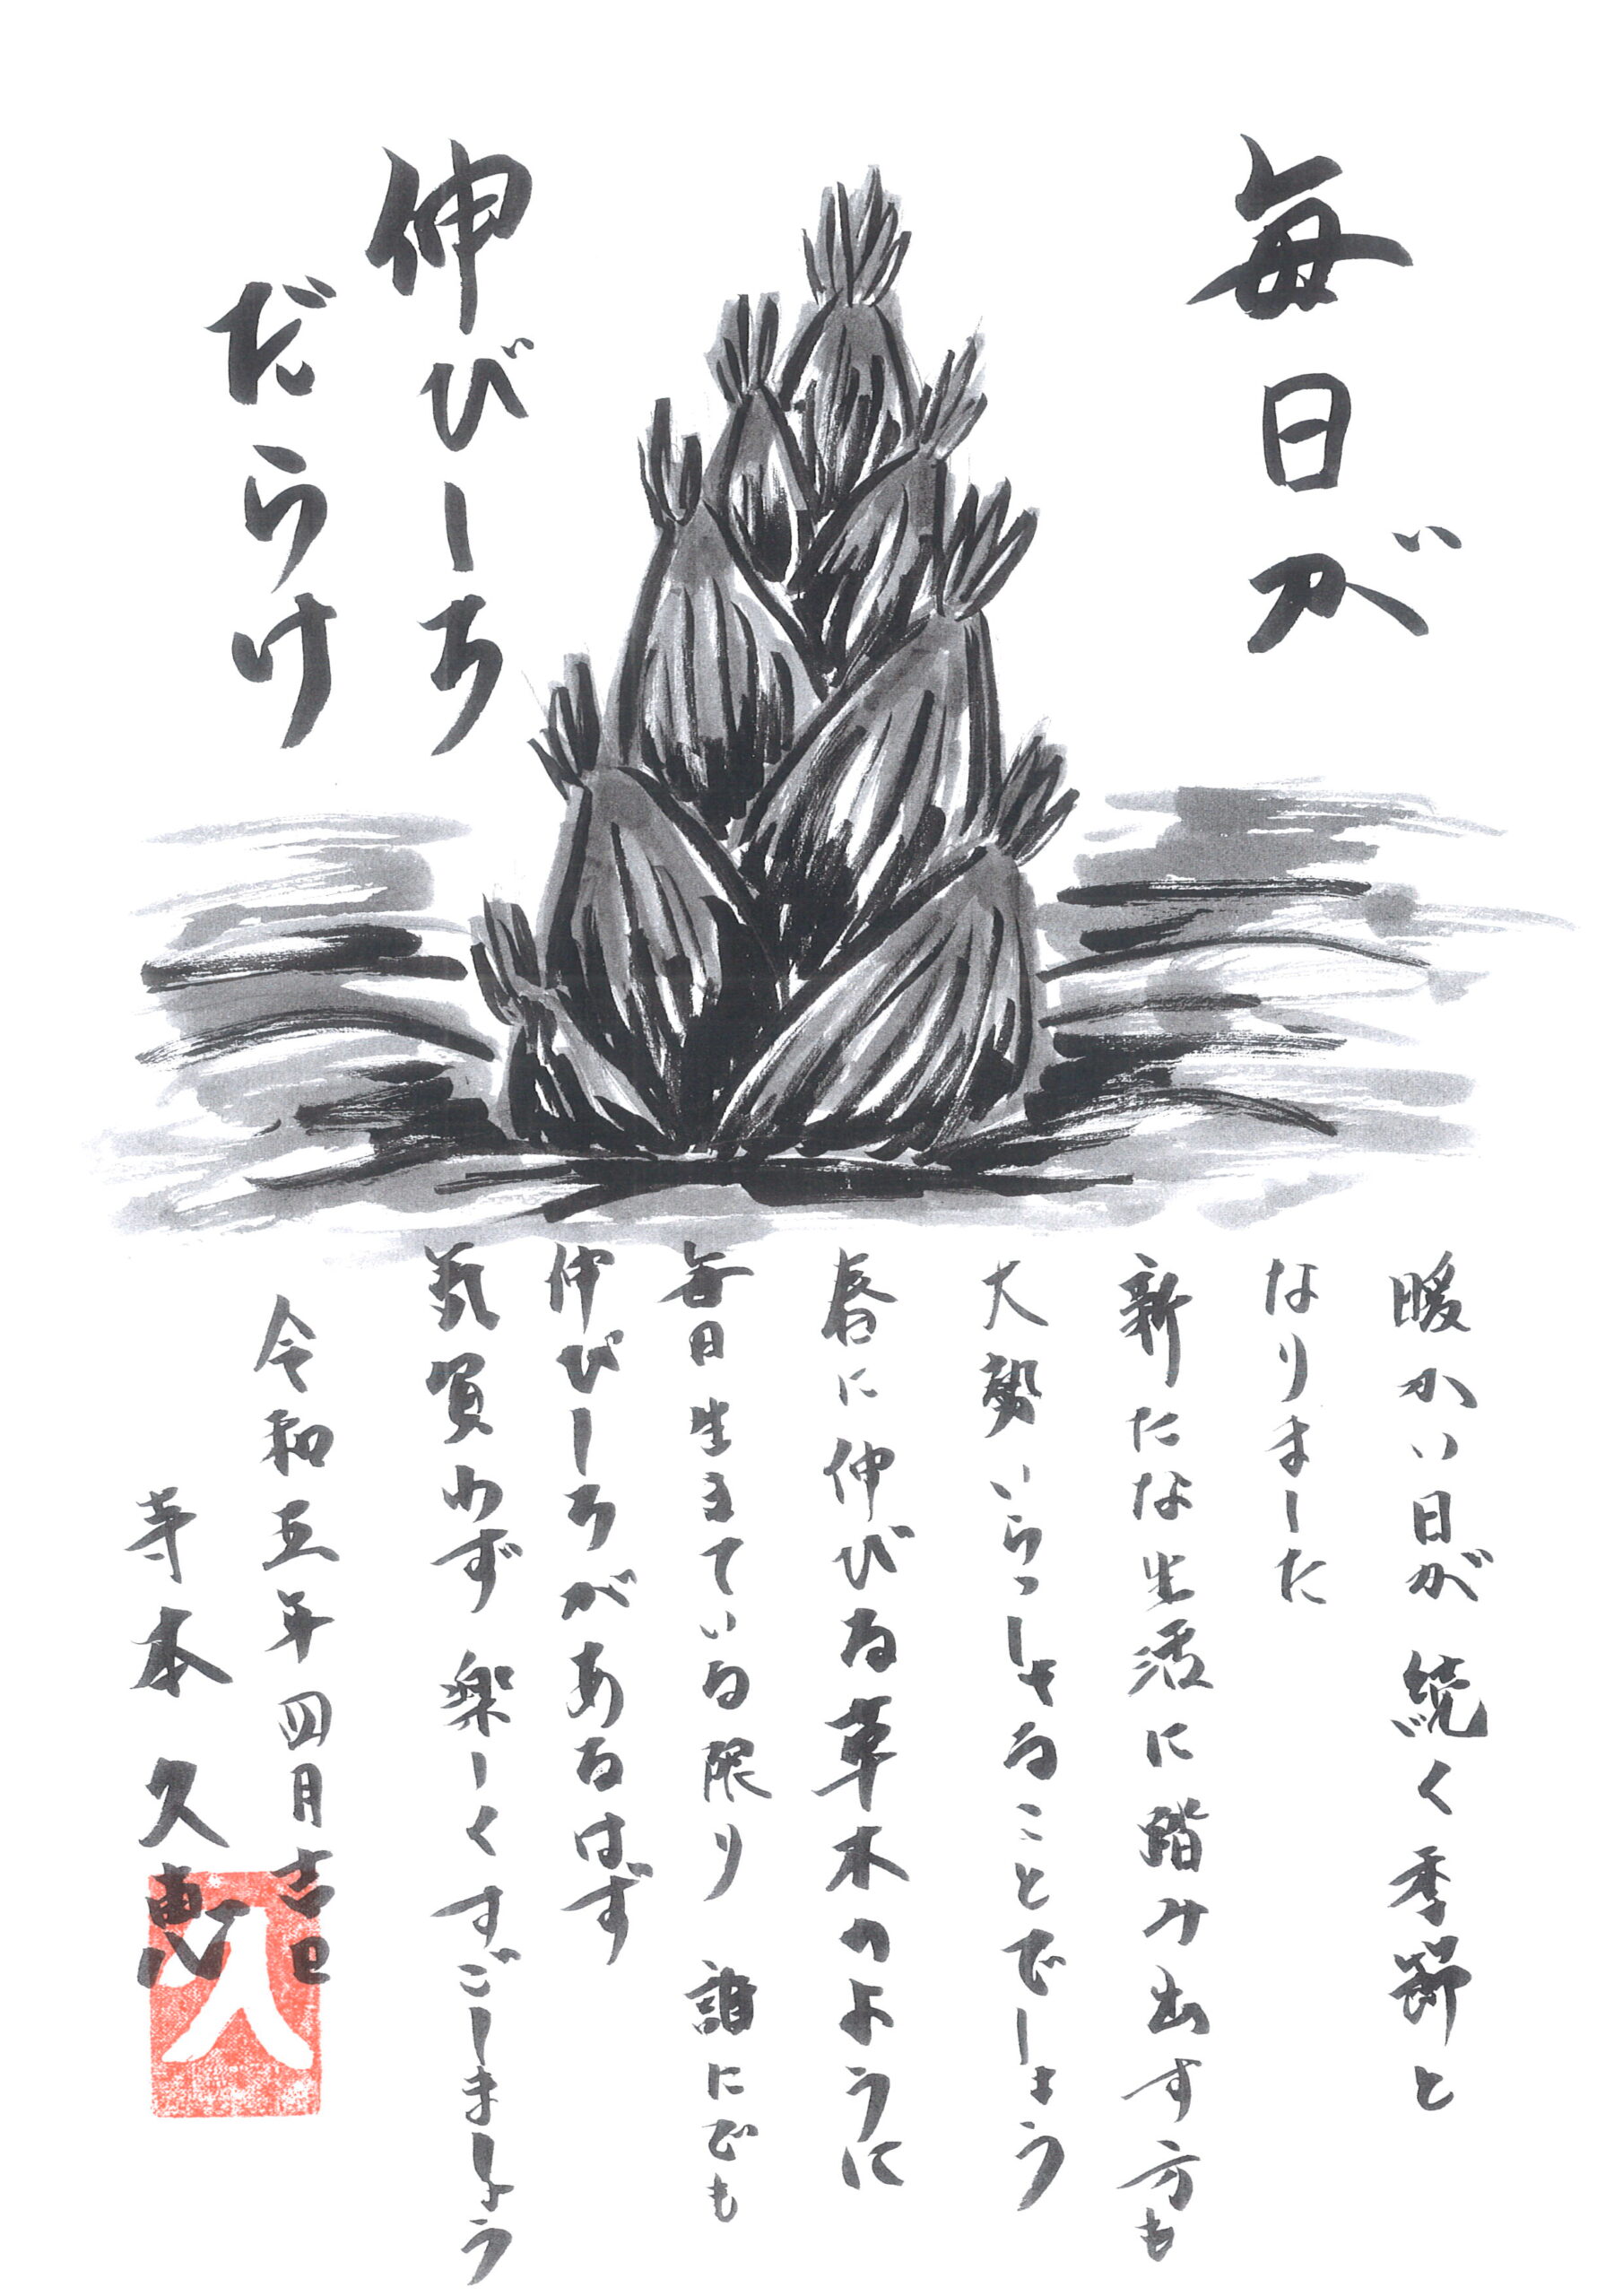 毎日が
伸びしろ
だらけ
暖かい日が続く季節と
なりました
新たな生活に踏み出す方も
大勢いらっしゃることでしょう
春に伸びる草木のように
毎日生きている限り 誰にでも
伸びしろがあるはず
気負わず 楽しくすごしましょう
令和五年四月吉日
寺本 久恵
久